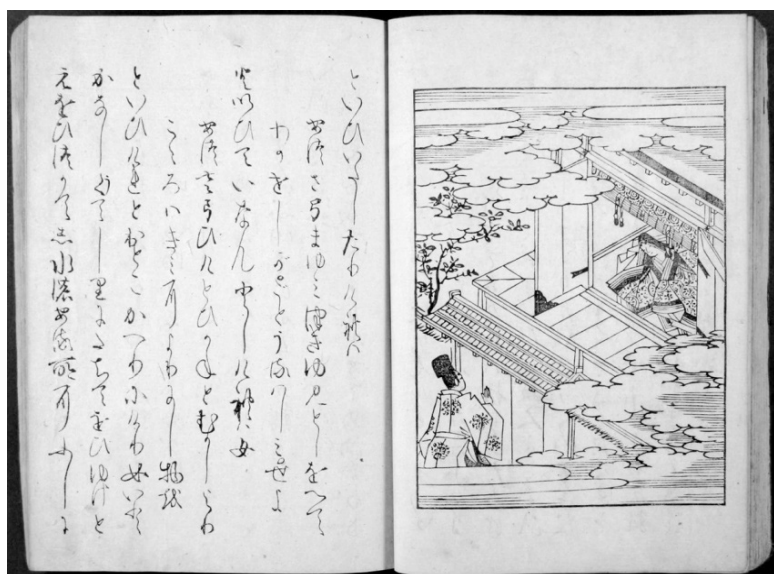 といひいたしたりけれは
あつさ弓まゆみつきゆみとしをへて
わかせしかことうるはしみせよ
といひていなんとしけれは女
あつさ弓ひけとひかねとむかしより
こゝろはきみによりにし物を
といひけれとおとこかへりにけり女いと
かなしくてしりにたちてをひゆけと
えをひつかてし水のある所にふしに